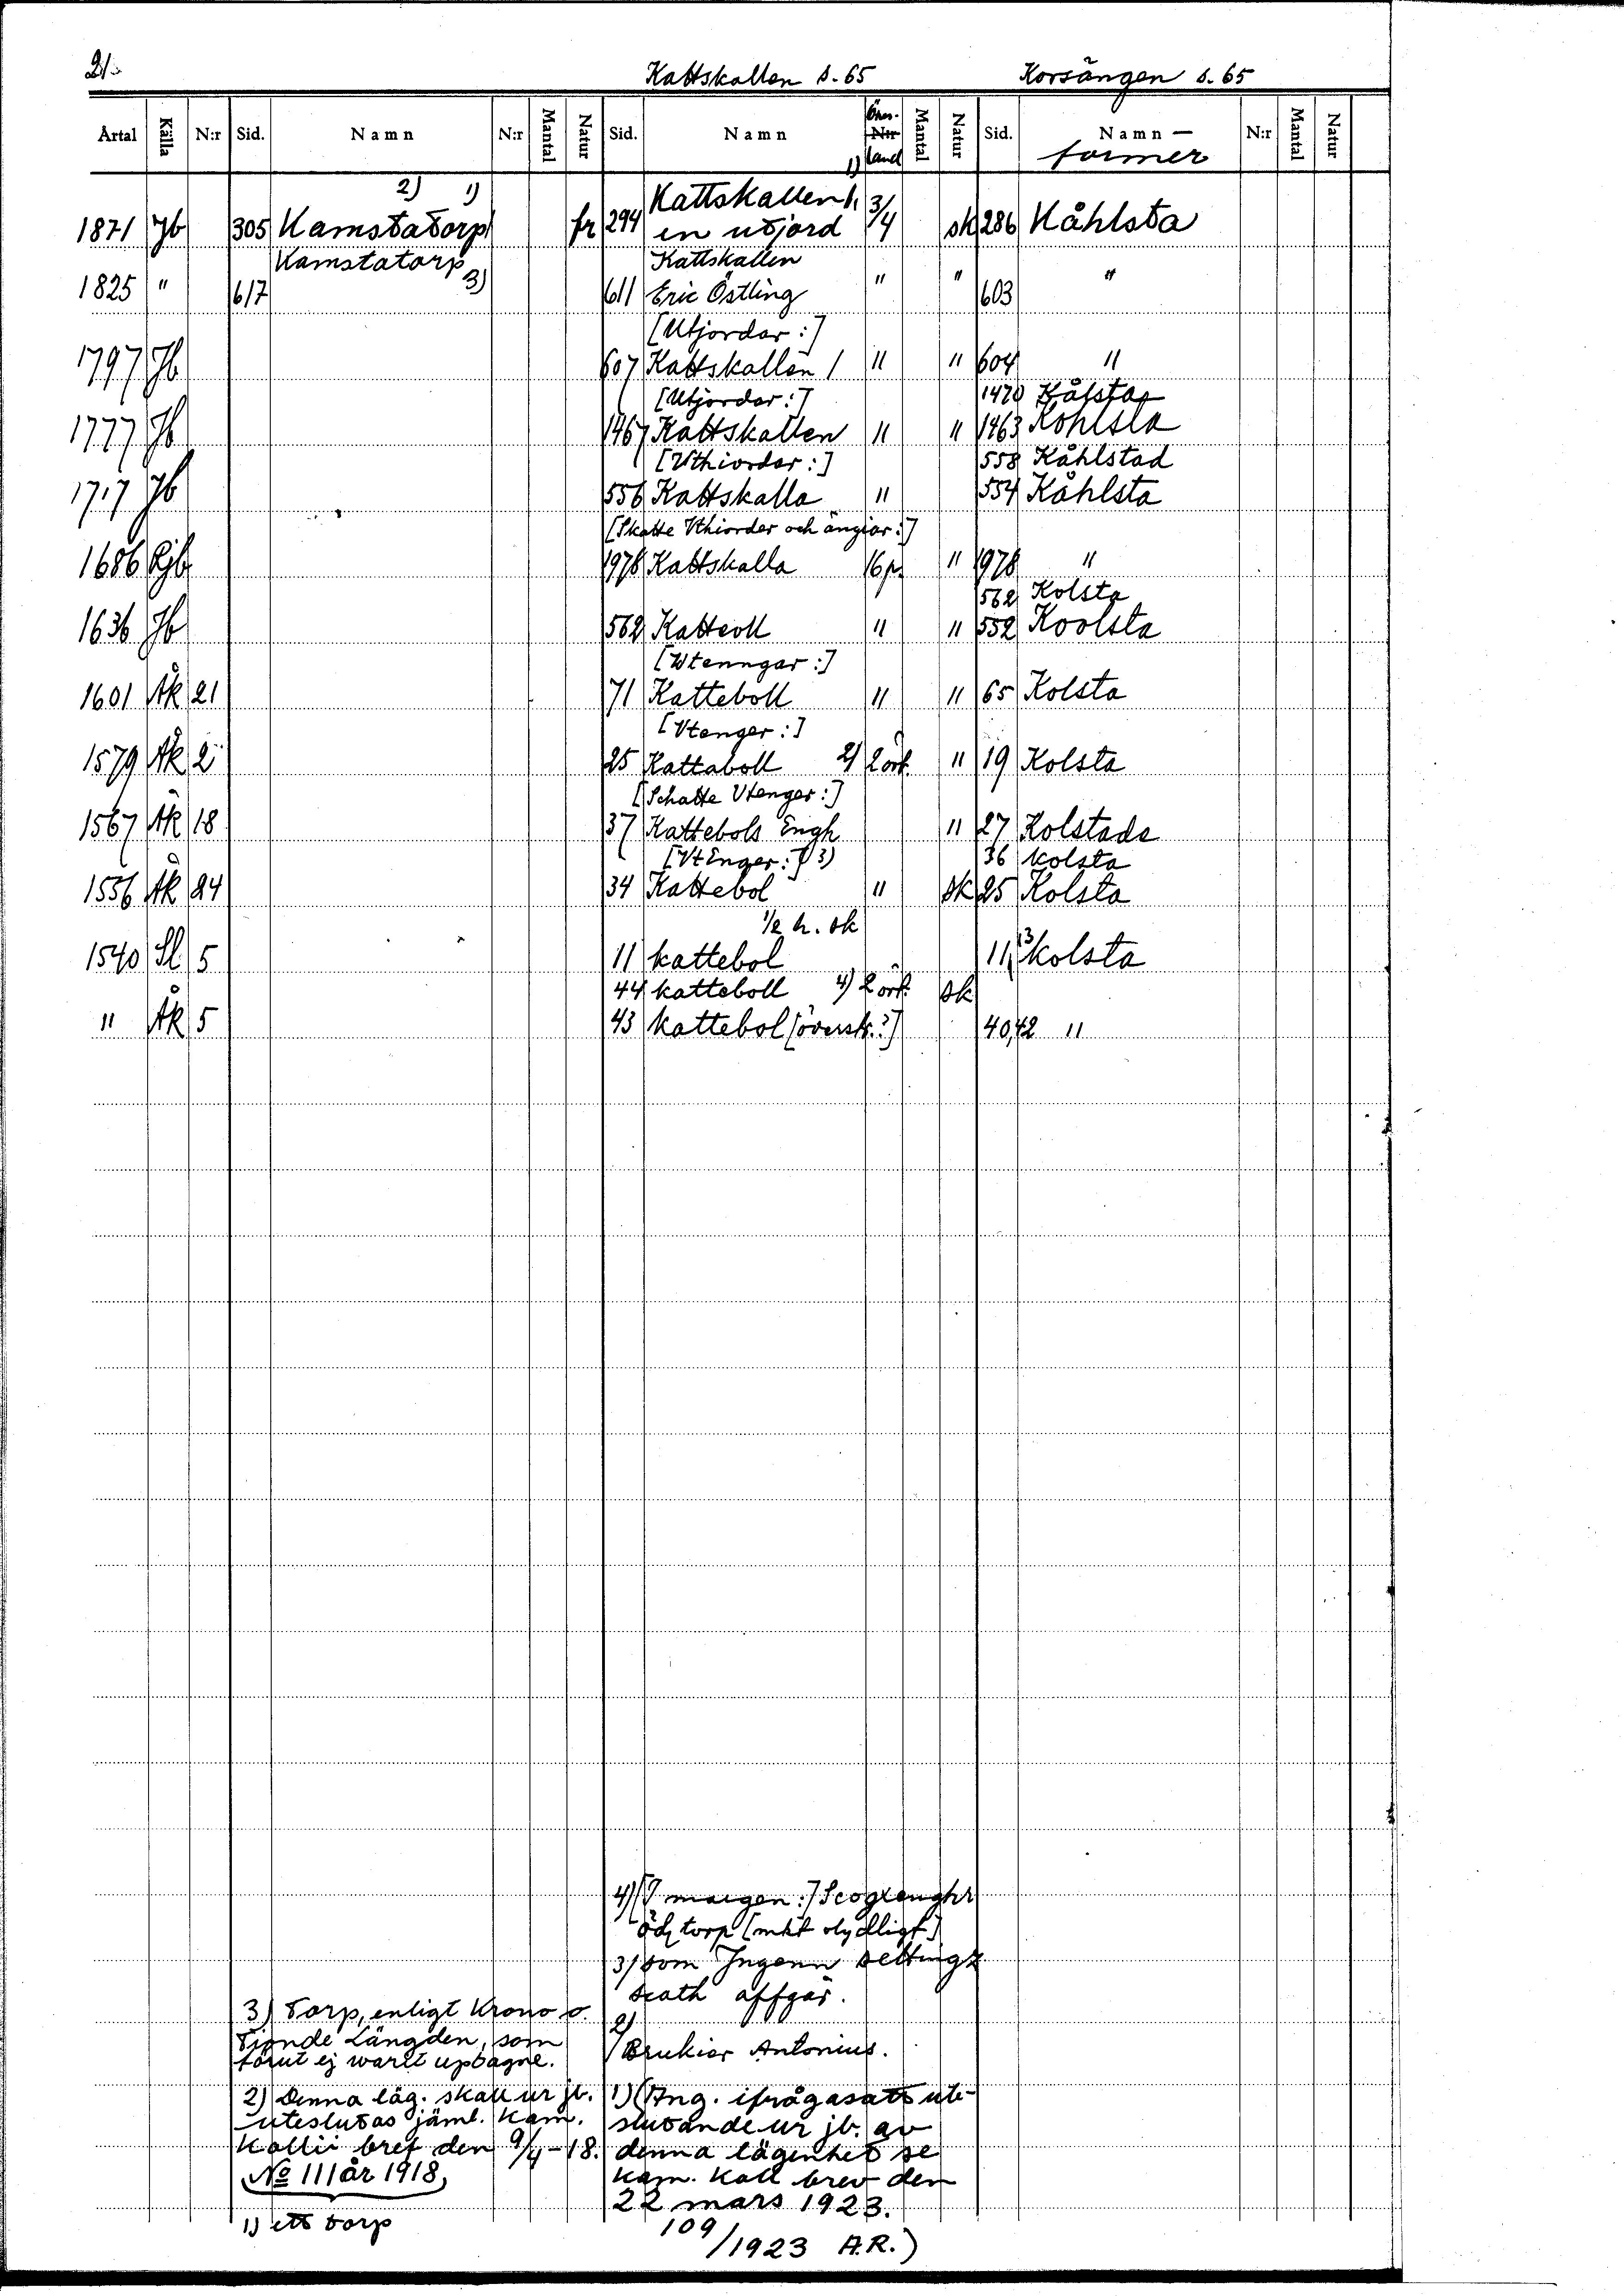 21.
Kattskallen s. 65 Korsängen s. 65
Årtal Källa N:r Sid. Namn N:r Mantal Natur Sid. Namn Öres- N:r land Mantal Natur Sid. Namn- former N:r Mantal Natur
2) 1) 1)
Kattskallen h.
1871 Jb 305 Kamstatorp fr 294 en utjord 3/4 sk 286 Kåhlsta
Kamstatorp Kattskallen
1825 " 617 3) 611 Eric Östling " " 603 "
[Utjordar:]
1797 Jb 607 Kattskallen 1 " " 604 "
[Utjordar:] 1470 Kålsta
1777 Jb 1467 Kattskallen " " 1463 Kohlsta
[Vthiordar:] 558 Kåhlstad
1717 Jb 556 Kattskalla " 554 Kåhlsta
[Skatte Vthiorder och ängiar:]
1686 Rjb 1978 Kattskalla 16 p. " 1978 "
562 Kolsta
1636 Jb 562 Katteoll " " 552 Koolsta
[Wtenngar:]
1601 Åk 21 71 Katteboll " " 65 Kolsta
[Vtenger:]
1579 Åk 2 25 Kattaboll 2) 2 örl. " 19 Kolsta
[Schatte Utenger:]
1567 Åk 18 37 Kattebols Engh " 27 Kolstada
[VtEnger:] 3) 36 kolsta
1556 Åk 24 34 Kattebol " sk 25 Kolsta
1/2 h. sk
1540 Sl 5 11 kattebol 11, 13 kolsta
44 katteboll 4) 2 örl. sk
" Åk 5 43 kattebol [överstr.?] 40,42 "
4) [I margen:] Scogxenghr
och torp [mkt otydligt]
3) som Ingenn settingx
scath affgär.
2)
Brukior Antonius.
1) (Ang. ifrågasatt ute-
slutande ur jb. av
denna lägenhet se
Kam. Koll brev den
22 mars 1923.
109/1923 A.R.)
3) Torp, enligt Krono o.
Tionde Längden, som
förut ej warit uptagne.
2) Denna läg. skall ur jb.
uteslutas jäml. Kam.
Kollii bref den 9/4-18.
No 111 år 1918
1) ett torp